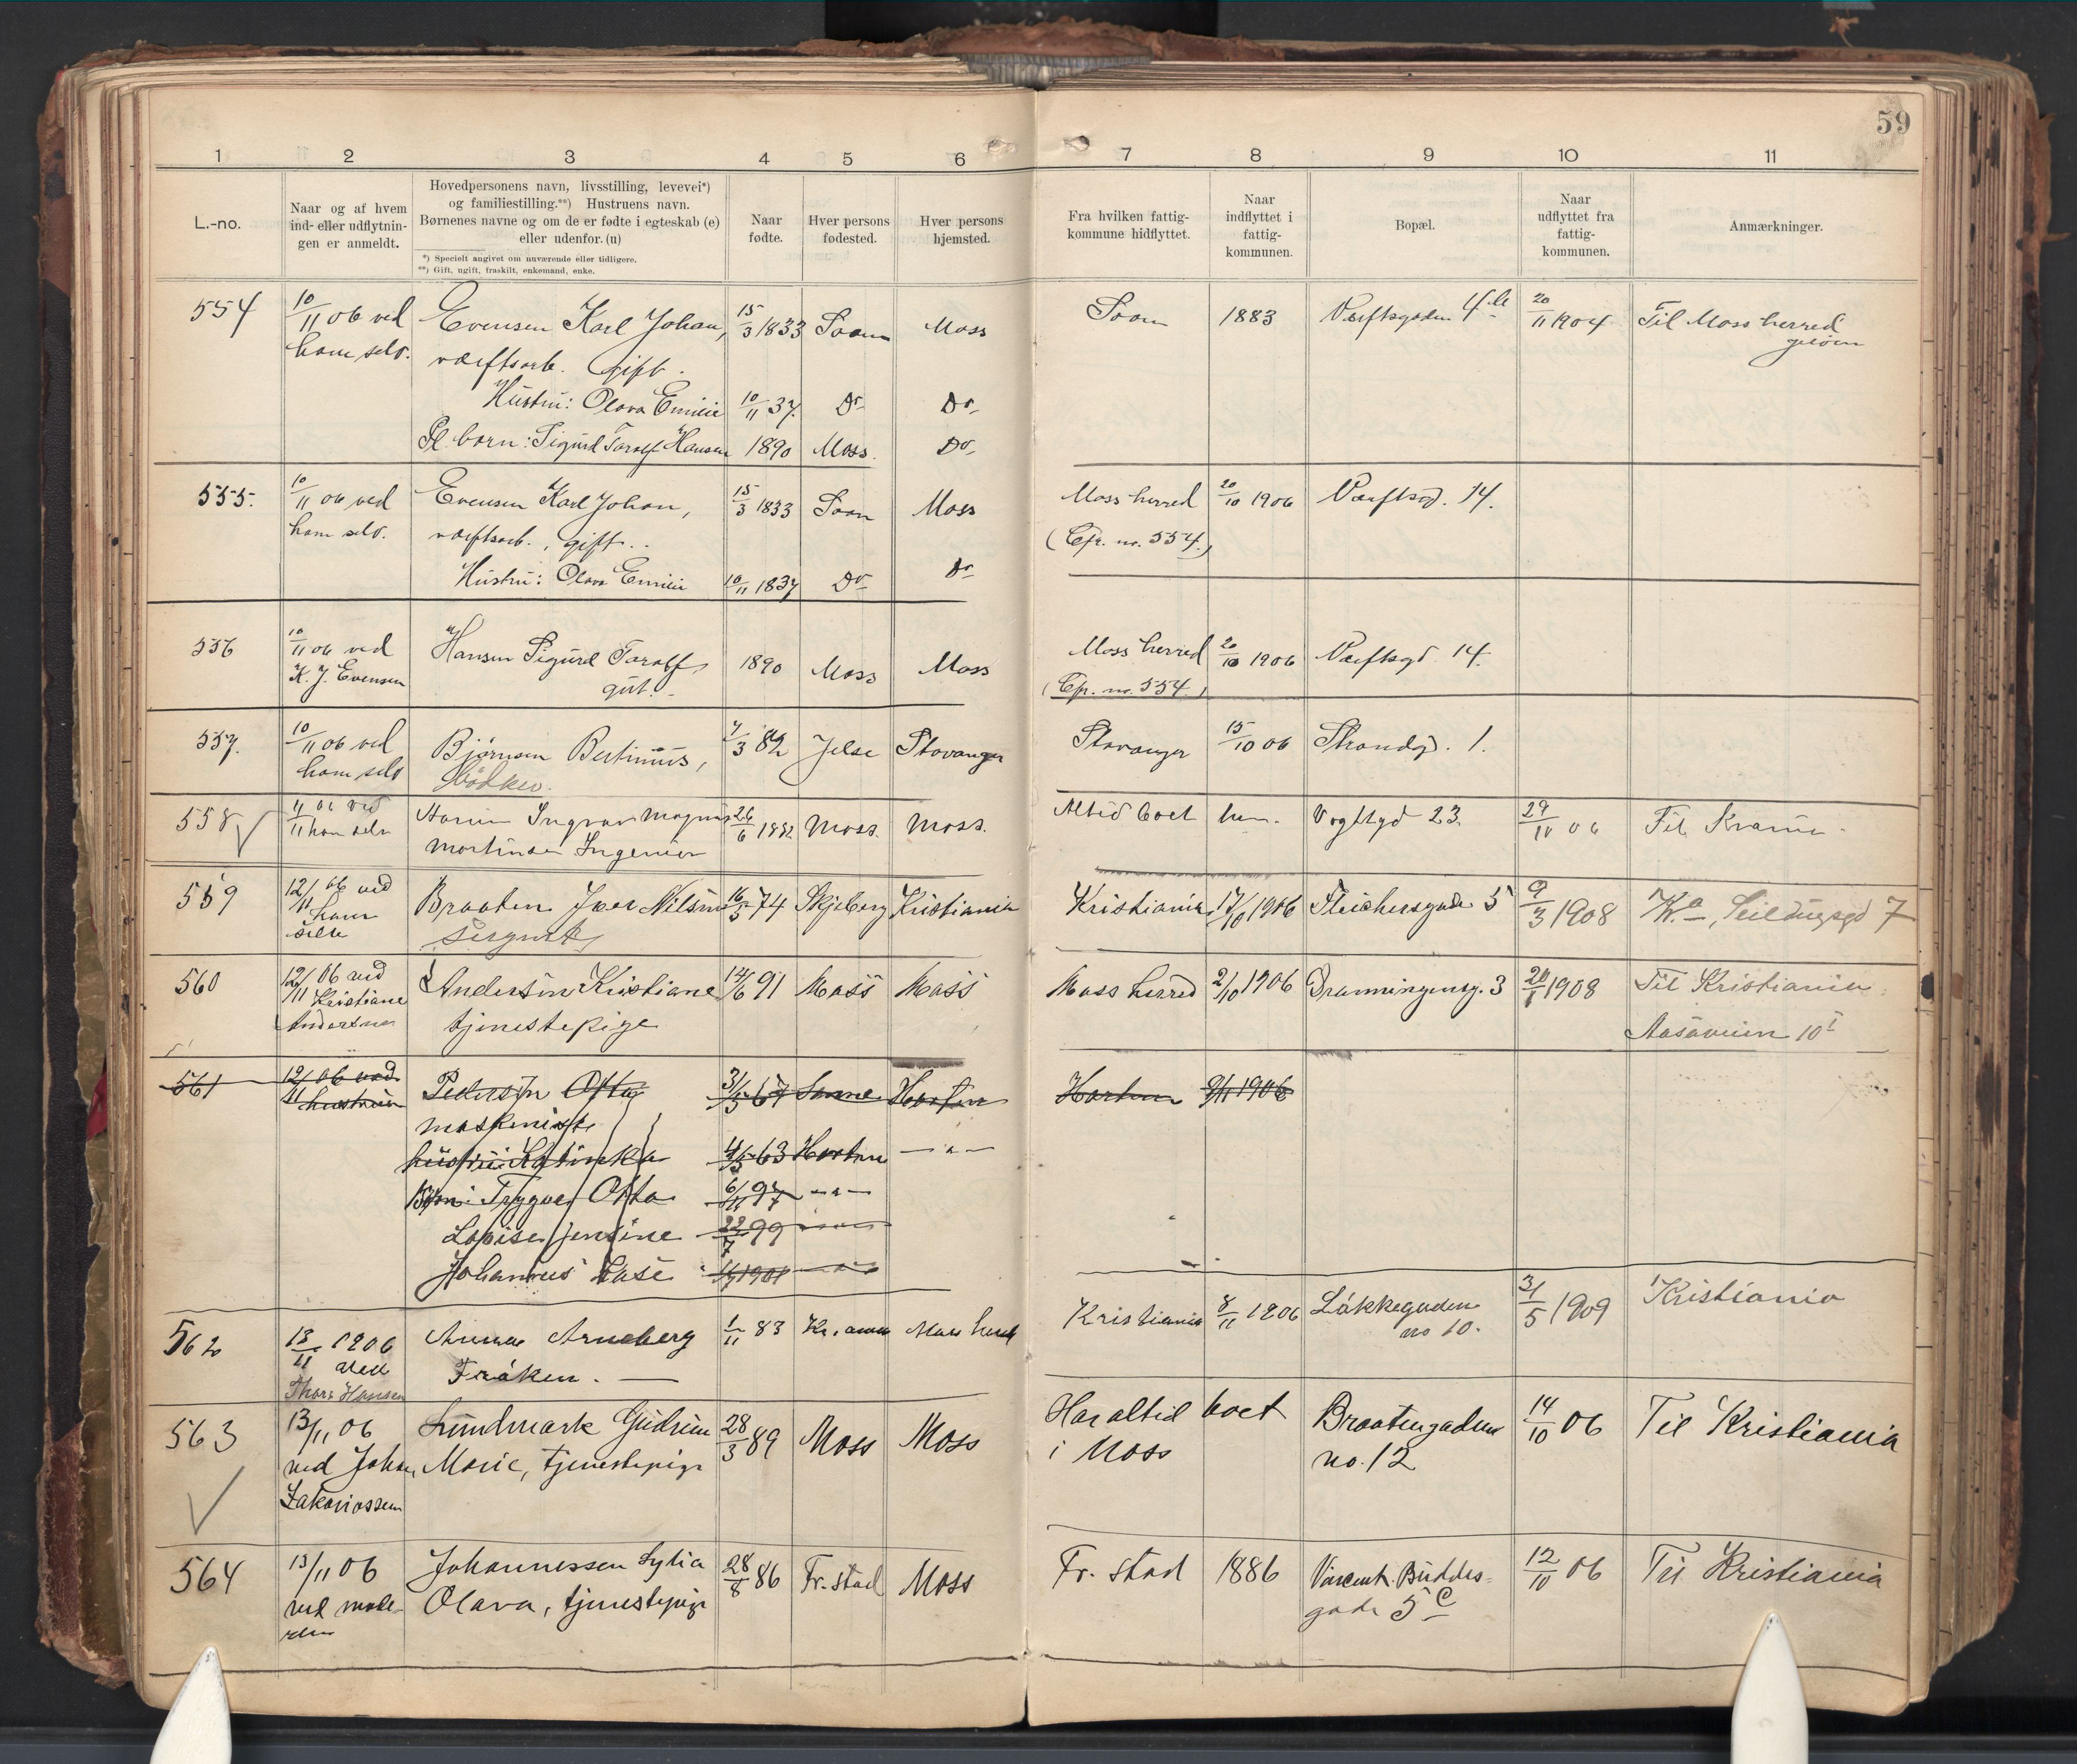 59
1 2 3 4 5 6 7 8 9 10 11
L.-no.
Naar og af hvem
ind- eller udflytnin-
gen er anmeldt.
Hovedpersonens navn, livsstilling, levevei*)
og familiestilling.**) Hustruens navn.
Børnenes navne og om de er fødte i egteskab (e)
eller udenfor. (u)
*) Specielt angivet om nuværende eller tidligere.
**) Gift, ugift, fraskilt, enkemand, enke.
Naar
fødte.
Hver persons
fødested.
Hver persons
hjemsted.
Fra hvilken fattig-
kommune hidflyttet.
Naar
indflyttet i
fattig-
kommunen.
Bopæl.
Naar
udflyttet fra
fattig-
kommunen.
Anmærkninger.
554 10/11 06 ved Evensen Karl Johan, 15/3 1833 Soon Moss Soon 1883 Værftsgaden 20/11 1904 Til Moss herred
ham selv. værftsarb. gift. Geløen
Hustru: Olava Emilie 10/11 37. Do Do
Pl. barn: Sigurd Taralf Hansen 1890 Moss. Do
555. 10/11 06 ved Evensen Karl Johan, 15/3 1833 Soon Moss Moss herred 20/10 1906 Værftsgd. 14.
ham selv. værftsarb., gift. (Cfr. no. 554.)
Hustru: Olava Emilie 10/11 1837 Do Do
556 10/11 06 ved Hansen Sigurd Taralf, 1890 Moss Moss Moss herred 20/10 1906 Værftsgd. 14.
K. J. Evensen gut. (Cfr. no. 554.)
557. 10/11 06 ved Bjørnsen Bertinius, 7/3 82 Jelse Stavanger Stavanger 15/10 06 Strandgd. 1.
ham selv Bødker.
558 11/11 06 ved Ingvar Magnus 26/6 1882 Moss. Moss. Altid boet her. Vogtsgd 23. 29/10 06 Til Krania.
ham selv Martinsen Ingeniør
559 12/11 06 ved Braaten Iver Nilsen 16/5 74 Skjeberg Kristiania Kristiania 17/10 1906 Fleichersgade 5 9/3 1908 Kra, Seildugsgd 7
ham
selv Sergent
560 12/11 06 ved Andersen Kristiane 14/6 91 Moss Moss Moss herred 2/10 1906 Dronningensg. 3 20/1 1908 Til Kristiania.
Kristiane
Andersen tjenestepige Aasaveien 10 I
561 12/11 06 ved Pedersen Otto 31/5 67 Horten Horten 9/11 1906
hustruen maskinist
hustru: Katinka 4/5 63 Horten — " —
Børn: Trygve Otto 6/11 97 — " —
Lovise Jensine 22/7 99 — " —
Johannes 1901 — " —
562 13/11 1906 Anna Arneberg 1/11 83 Kr.ania Moss herred Kristiania 8/11 1906 Løkkegaden 31/5 1909 Kristiania
ved Frøken. — no 10.
Thora Hansen
563 13/11 06 Lundmark Gudrun 28/3 89 Moss Moss Har altid boet Braatengaden 14/10 06 Til Kristiania
ved Johan Marie, tjenestepige i Moss no. 12
Zakariassen
564 13/11 06 Johannessen Sylia 28/8 86 Fr.stad Moss Fr. stad 1886 Vincent Buddes- 12/10 06 Til Kristiania
ved mode- Olava, tjenestepige gade 5 C
ren